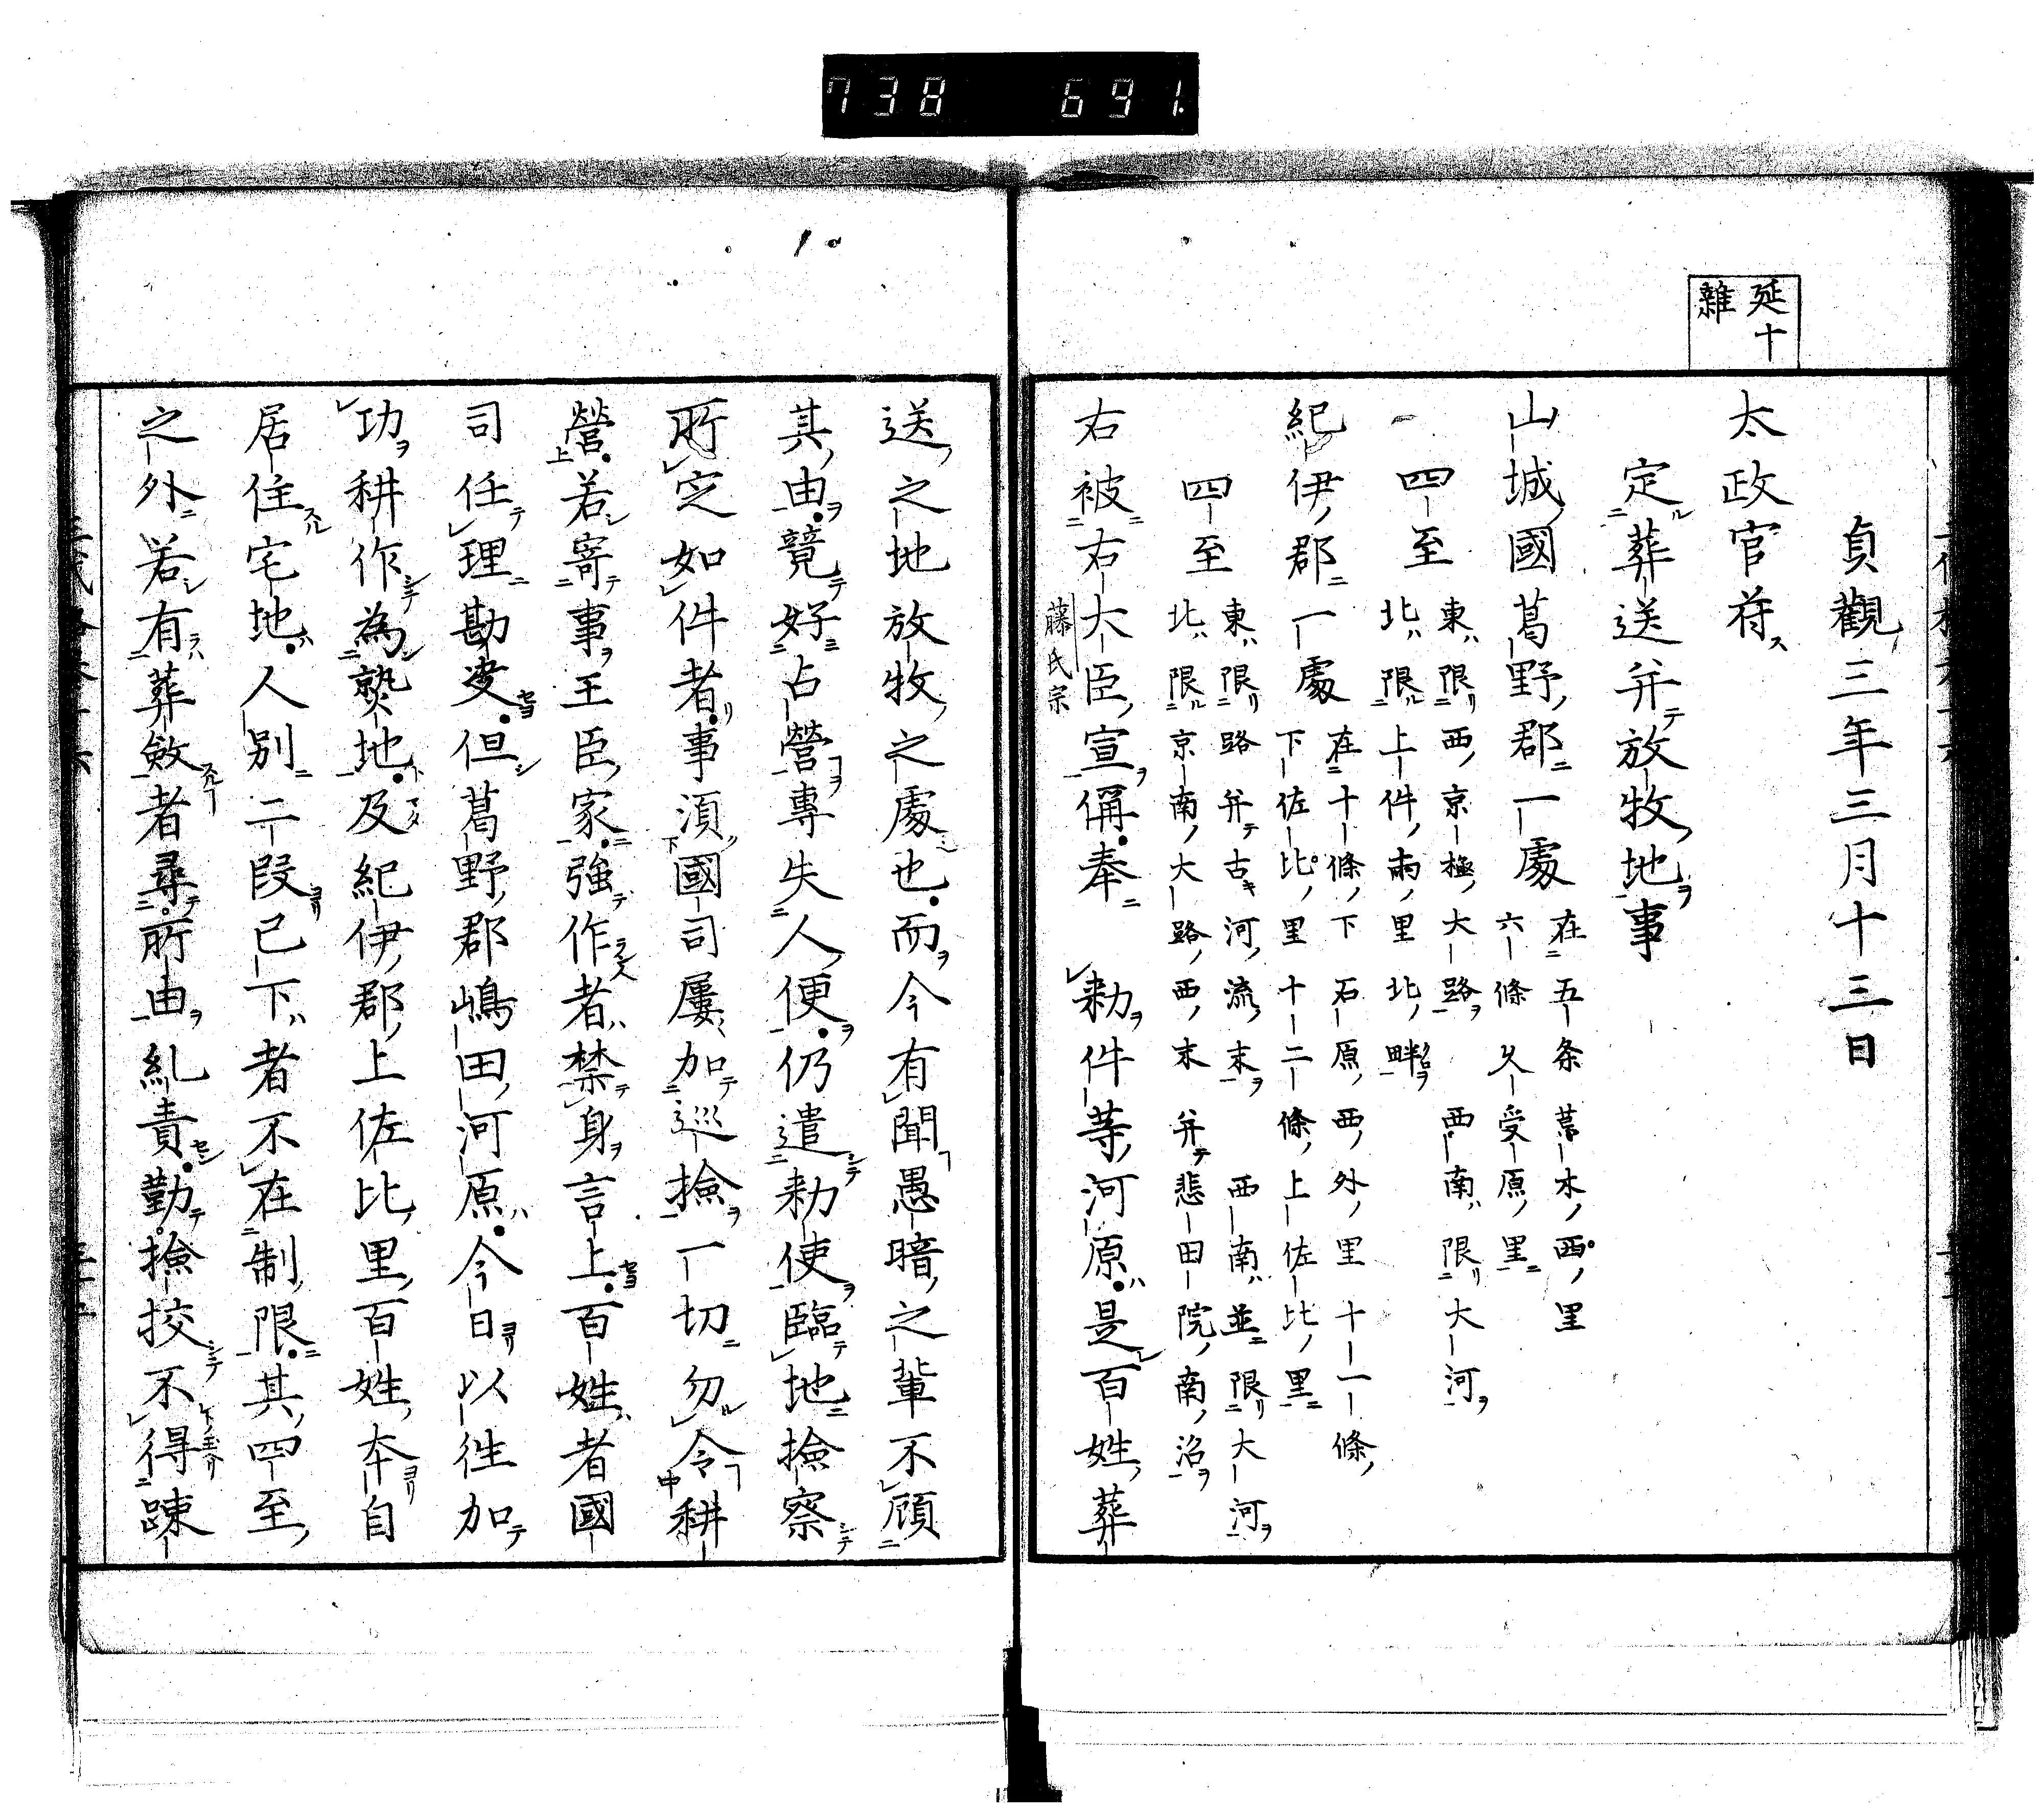 738 691.
延十
雜
貞觀三年三月十三日
太政官符
定葬送并放牧地事
山城國葛野郡一處
在五条荒木西里
六條久受原里
四至
東限西京極大路
西南限大河
北限上件兩里北畔
紀伊郡一處
在十條下石原西外里十一條
下佐比里十二條上佐比里
四至
東限路并古河流末
西南並限大河
北限京南大路西末并悲田院南沼
右被右大臣宣偁奉　勅件等河原是百姓葬
藤氏宗
送之地放牧之處也而今有聞愚暗之輩不顧
其由競好占營專失人便仍遣勅使臨地撿察
所定如件者事須國司屢加巡撿一切勿令耕
營若寄事王臣家強作者禁身言上百姓者國
司任理勘决但葛野郡嶋田河原今日以徃加
功耕作為熟地及紀伊郡上佐比里百姓本自
居住宅地人別二段已下者不在制限其四至
之外若有葬斂者尋所由糺責勤撿挍不得踈